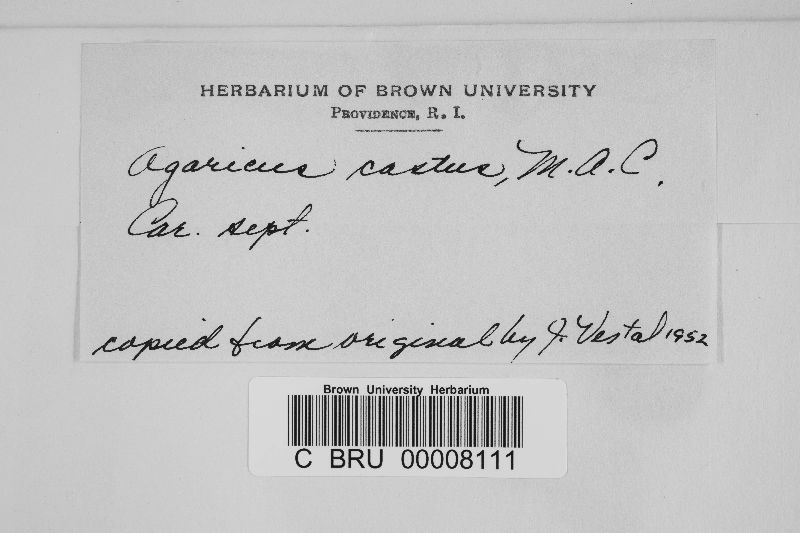 HERBARIUM OF BROWN UNIVERSITY
PROVIDENCE, R. I.
Agaricus castus, M.A.C.
Car. sept.
copied from original by J. Vestal 1952
Brown University Herbarium
C BRU 00008111